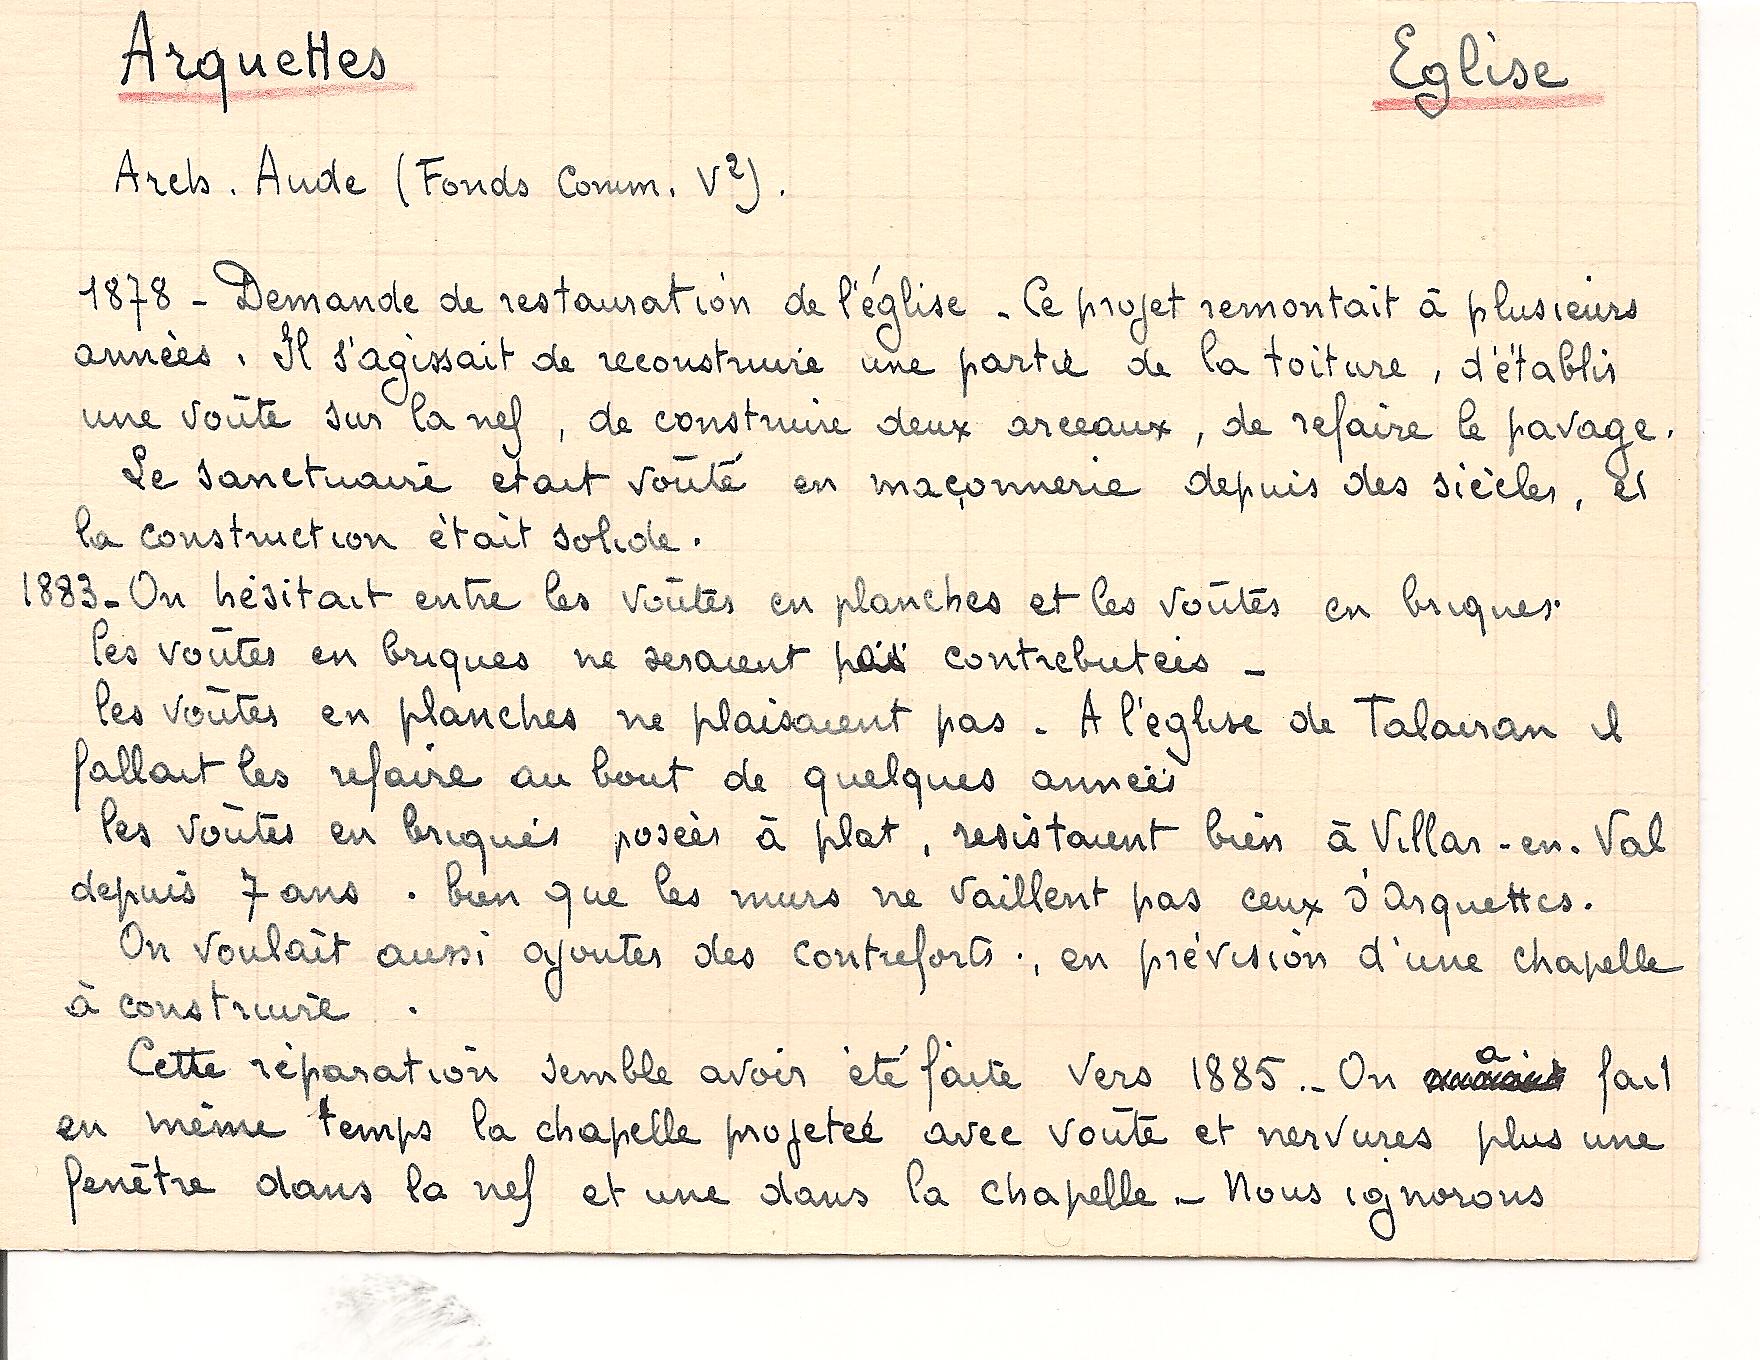 Arquettes Eglise
Arch. Aude (Fonds Comm. V²).
1878 - Demande de restauration de l'église - Ce projet remontait à plusieurs
années. Il s'agissait de reconstruire une partie de la toiture, d'établir
une voûte sur la nef, de construire deux arceaux, de refaire le pavage.
Le sanctuaire etait voûté en maçonnerie depuis des siècles, et
la construction était solide.
1883 - On hésitait entre les voûtes en planches et les voûtes en briques.
les voûtes en briques ne seraient pas contrebutées -
les voûtes en planches ne plaisaient pas - A l'église de Talairan il
fallait les refaire au bout de quelques années
les voûtes en briques posées à plat, resistaient bien à Villar-en-Val
depuis 7 ans . bien que les murs ne vaillent pas ceux d'Arquettes.
On voulait aussi ajouter des contreforts., en prévision d'une chapelle
à construire .
Cette réparation semble avoir été faite vers 1885 - On a fait
en même temps la chapelle projetée avec voûte et nervures plus une
fenêtre dans la nef et une dans la chapelle - Nous ignorons